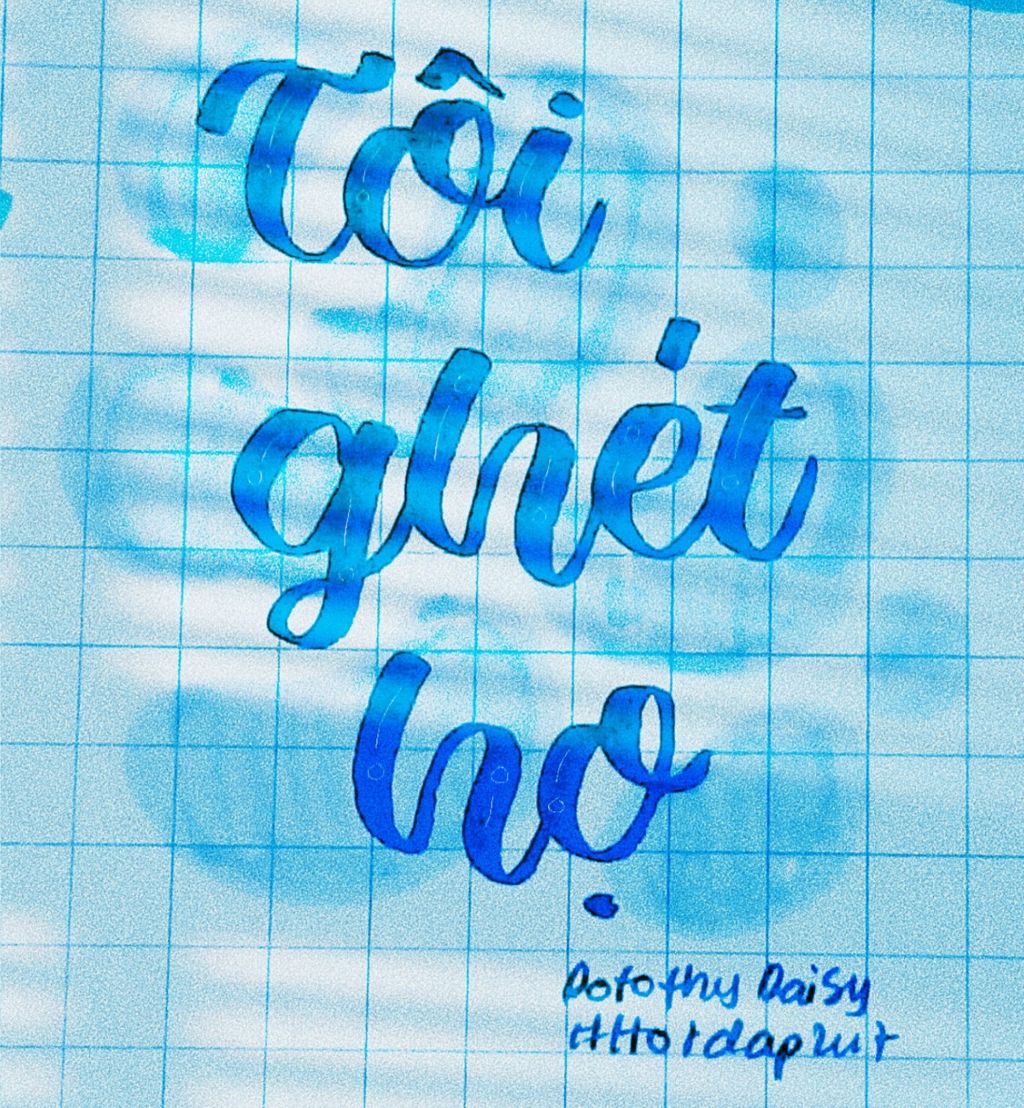 Tôi
ghét
họ
Dorothy Daisy